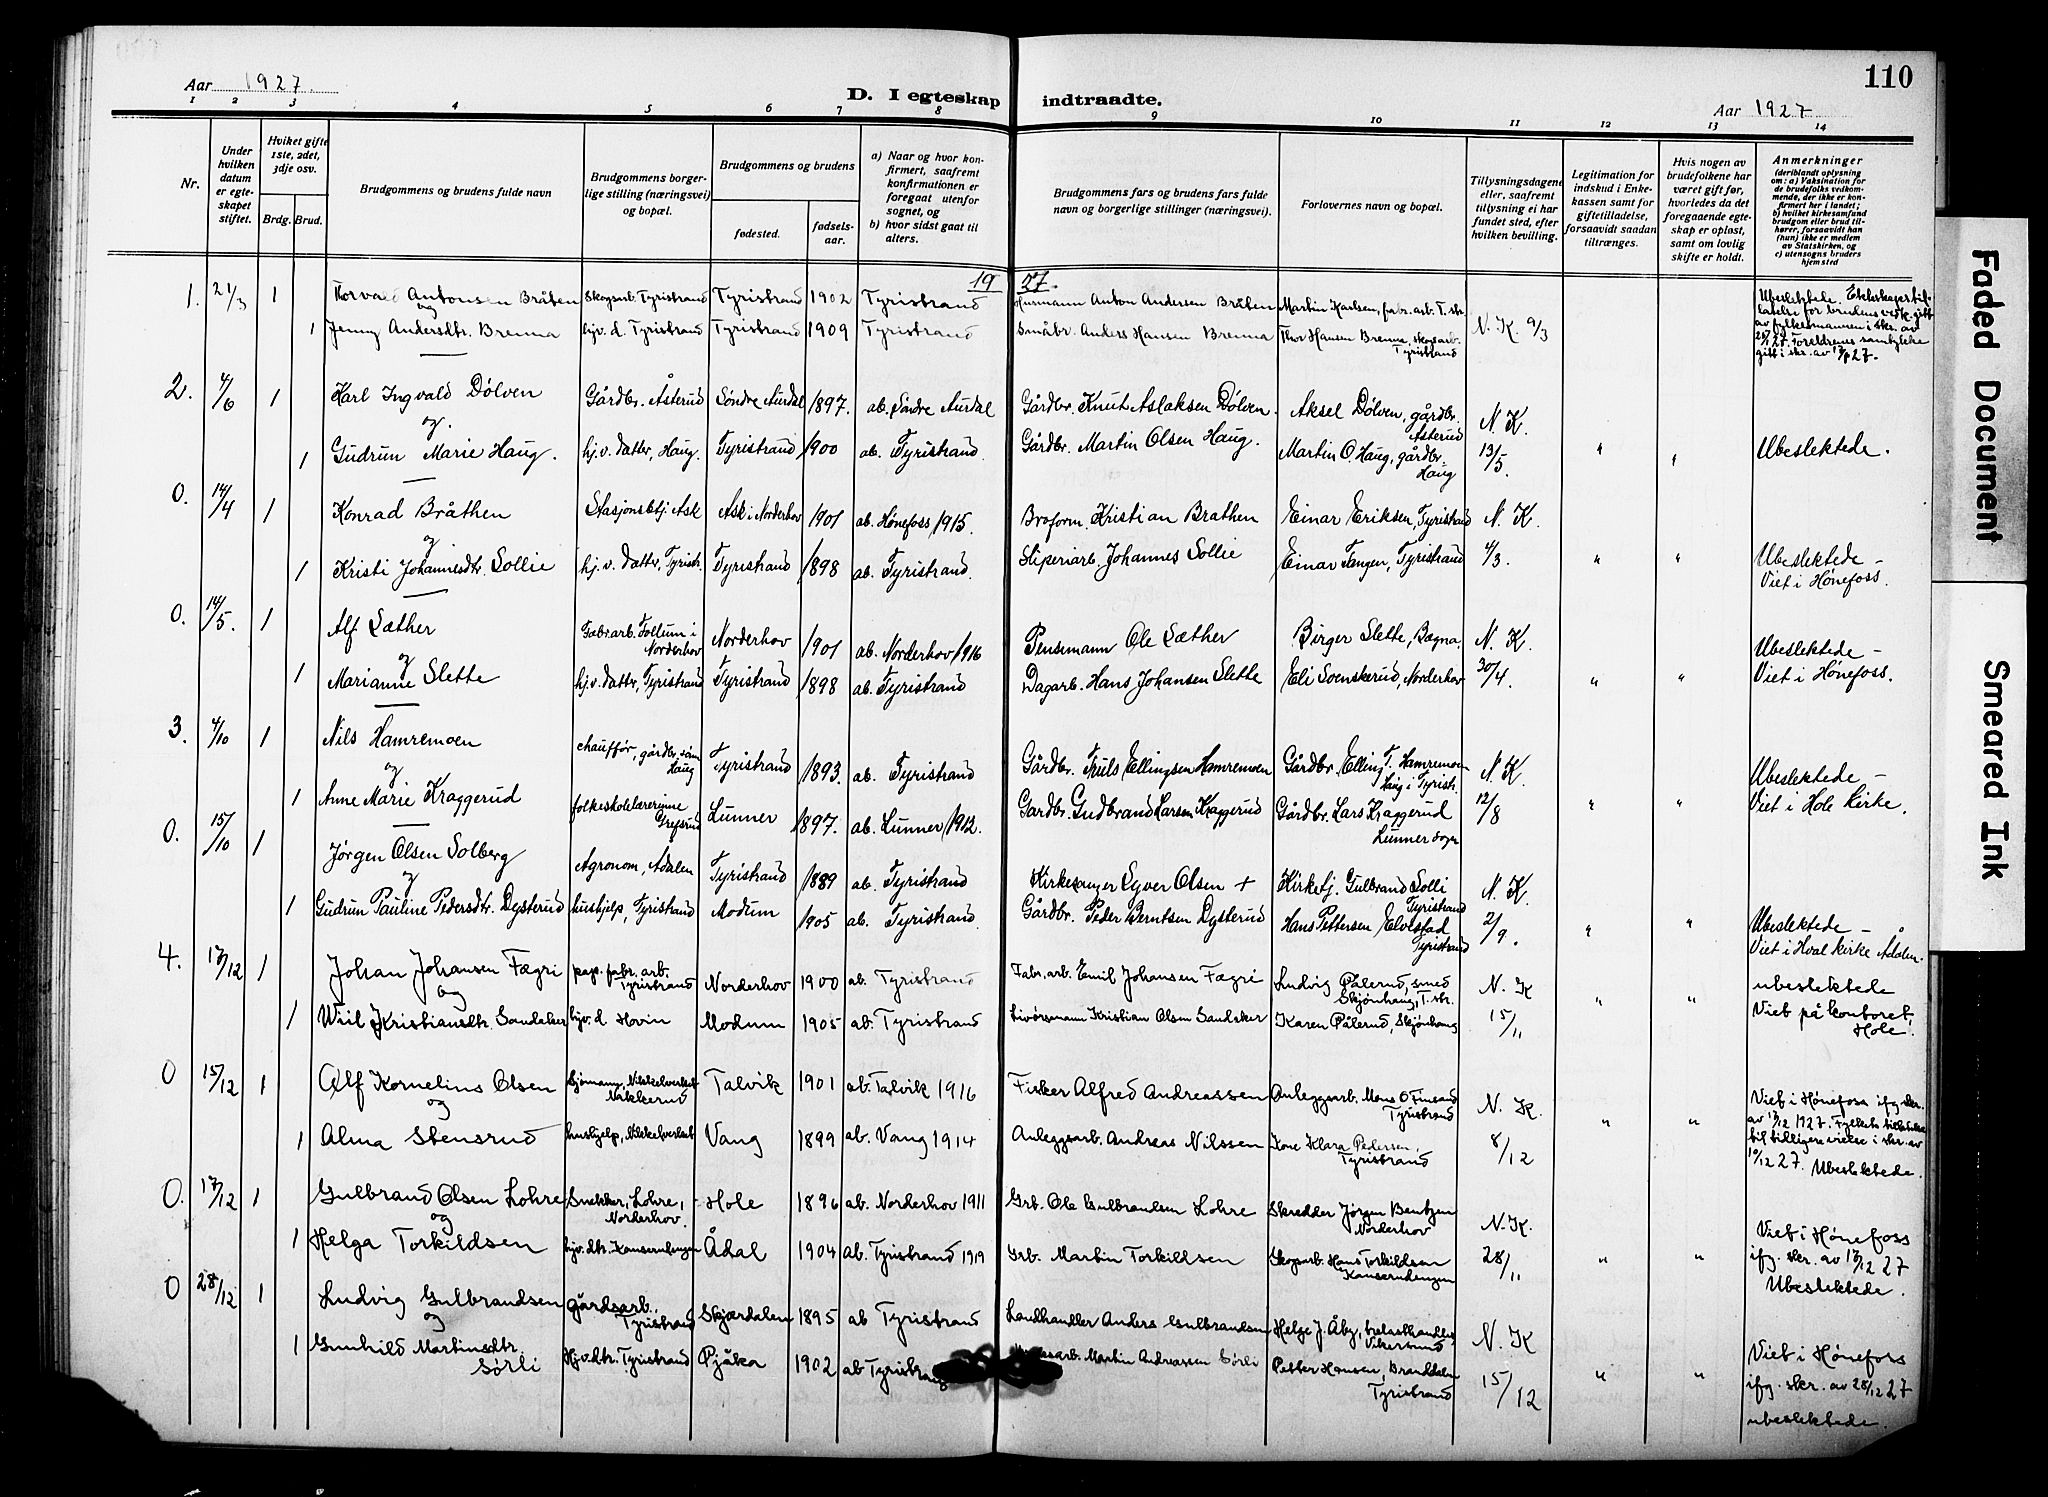 110
Aar 1927.
D. I egteskap indtraadte.
Aar 1927
1 2 3 4 5 6 7 8 9 10 11 12 13 14
Nr.
Under hvilken datum er egteskapet stiftet.
Hviket gifte 1ste, 2det, 3dje osv.
Brdg. Brud.
Brudgommens og brudens fulde navn
Brudgommens borgerlige stilling (næringsvei) og bopæl.
Brudgommens og brudens
fødested.
fødselsaar.
a) Naar og hvor konfirmert, saafremt konfirmationen er foregaat utenfor sognet, og
b) hvor sidst gaat til alters.
Brudgommens fars og brudens fars fulde navn og borgerlige stillinger (næringsvei).
Forlovernes navn og bopæl.
Tillysningsdagene eller, saafremt tillysning ei har fundet sted, efter hvilken bevilling.
Legitimation for indskud i Enkekassen samt for giftetilladelse, forsaavidt saadan tiltrænges.
Hvis nogen av brudefolkene har været gift før, hvorledes da det foregaaende egteskap er opløst, samt om lovlig skifte er holdt.
Anmerkninger (deriblandt oplysning om: a) Vaksination for de brudefolks vedkommende, der ikke er konfirmert her i landet; b) hvilket kirkesamfund brudgom eller brud tilhører, forsaavidt han (hun) ikke er medlem av Statskirken, og c) utensogns bruders hjemsted
19 27.
1. 21/3 1 Torvald Antonsen Bråten Skogsarb. Tyristrand Tyristrand 1902 Tyristrand Husmann Anton Andersen Bråten Martin Karlsen, fabr. arb. T. str.
og
1 Jenny Andersdtr. Brenna hjv. d. Tyristrand Tyristrand 1909 Tyristrand Småbr. Anders Hansen Brenna Thor Hansen Brenna, skogsarb. Tyristrand N. K. 9/3
Ubeslektede. Ekteskapstillatelse for brudens vedk. gitt av fylkesmannen i skr. av 27. Foreldrenes samtykke gitt i skr. av 27.
2. 4/6 1 Karl Ingvald Dölven Gårdbr. Åsterud Söndre Aurdal 1897. ab. Söndre Aurdal Gårdbr. Knut Aslaksen Dölven. Aksel Dölven, gårdbr. Åsterud N. K.
og.
1 Gudrun Marie Haug. hj.v. datter, Haug. Tyristrand 1900 ab. Tyristrand. Gårdbr. Martin Olsen Haug. Martin O. Haug, gårdbr. Haug 13/5. " " Ubeslektede.
0. 14/4 1 Konrad Bråthen Stasjonsbtj. Ask Ask i Norderhov 1901 ab. Hönefoss 1915. Broform. Kristian Brathen Einar Eriksen, Tyristrand N. K.
og.
1 Kristi Johannesdtr. Sollie hj. v. datter, Tyristr. Tyristrand 1898 ab. Tyristrand. Sliperiarb. Johannes Sollie Einar Fangen, Tyristrand 4/3. " " Ubeslektede –
Viet i Hönefoss.
0. 14/5. 1 Alf Sæther Fabr.arb. Follum i Norderhov Norderhov 1901 ab. Norderhov 1916 Pensemann Ole Sæther Birger Slette, Bægna. N. K.
og
1 Marianne Slette hj.v. datter, Tyristrand Tyristrand 1898 ab. Tyristrand Dagarb. Hans Johansen Slette Eli Svenskerud, Norderhov 30/4. " " Ubeslektede –
Viet i Hönefoss.
3. 4/10 1 Nils Hamremoen chauffør, gårdbr.sønn Haug Tyristrand 1893. ab. Tyristrand Gårdbr. Truls Ellingsen Hamremoen Gårdbr. Elling T. Hamremoen Haug i Tyristr. N. K.
og
1 Anne Marie Kraggerud folkeskolelærerinne Grefsrud Lunner 1897. ab. Lunner 1912. Gardbr. Gudbrand Larsen Kraggerud Gårdbr. Lars Kraggerud Lunner sogn 12/8 " " Ubeslektede –
Viet i Hole kirke.
0. 15/10 1 Jørgen Olsen Solberg Agronom, Adalen Tyristrand 1889 ab. Tyristrand Kirkesanger Syver Olsen + Kirketj. Gulbrand Solli Tyristrand N. K.
og
1 Gudrun Pauline Pedersdtr. Dysterud hushjelp, Tyristrand Modum 1905 ab. Tyristrand. Gårdbr. Peder Berntsen Dysterud Hans Pettersen Elvestad Tyristrand 2/9. " " Ubeslektede –
Viet i Hval kirke Ådalen.
4. 17/12 1 Johan Johansen Fægri pap. fabr. arb. Tyristrand Norderhov 1900 ab. Tyristrand Fabr. arb. Emil Johansen Fægri Ludvig Pålerud, smed Skjønhaug, T. str. N. K
og
1 Wiil Kristiansdtr. Sandaker hjv. d Hovin Modum 1905 ab. Tyristrand Kristian Olsen Sandaker Karen Pålerud, Skjønhaug 15/11 " " ubeslektede
Viet på kontoret, Hole.
0 15/12 1 Alf Kornelius Olsen Sjømann, Nikkelverket Nakkerud Talvik 1901 ab. Talvik 1916 Fisker Alfred Andreassen Anleggsarb. Mons O Finsand Tyristrand N. K.
og
1 Alma Stensrud hushjelp, Nikkelverket Vang 1899 ab. Vang 1914 Anleggsarb. Andreas Nilssen Kone Klara Pedersen, Tyristrand 8/12 " " Viet i Hønefoss ifg skr. av 17/12 1927. Fylkets tillatelse til tidligere vielse i skr. av 10/12 27. Ubeslektede.
0. 17/12 1 Gulbrand Olsen Lohre Snekker, Lohre, Norderhov. Hole 1896 ab. Norderhov 1911 Grb. Ole Gulbrandsen Lohre Skredder Jørgen Bentzen Norderhov N. K.
og
1 Helga Torkildsen hjv. dtr. Kanserudengen Ådal 1904 ab. Tyristrand 1919 Grb. Martin Torkildsen Skogsarb. Hans Torkildsen Kanserudengen 28/11 " " Viet i Hønefoss ifg. skr. av 17/12 27
Ubeslektede.
0 28/12 1 Ludvig Gulbrandsen gårdsarb. Tyristrand Skjærdalen 1895 ab Tyristrand Landhandler Anders Gulbrandsen Helge J. Åby, trelasthandler, Vikersund N. K
og
1 Gunhild Martinsdtr. Sørli Hjv.dtr. Tyristrand Pjåka 1902 ab Tyristrand Martin Andreassen Sørli Petter Hansen, Branddalen Tyristrand 15/12 " " Viet i Hønefoss
ifg. skr. av 28/12 27
ubeslektede.
Faded Document
Smeared Ink